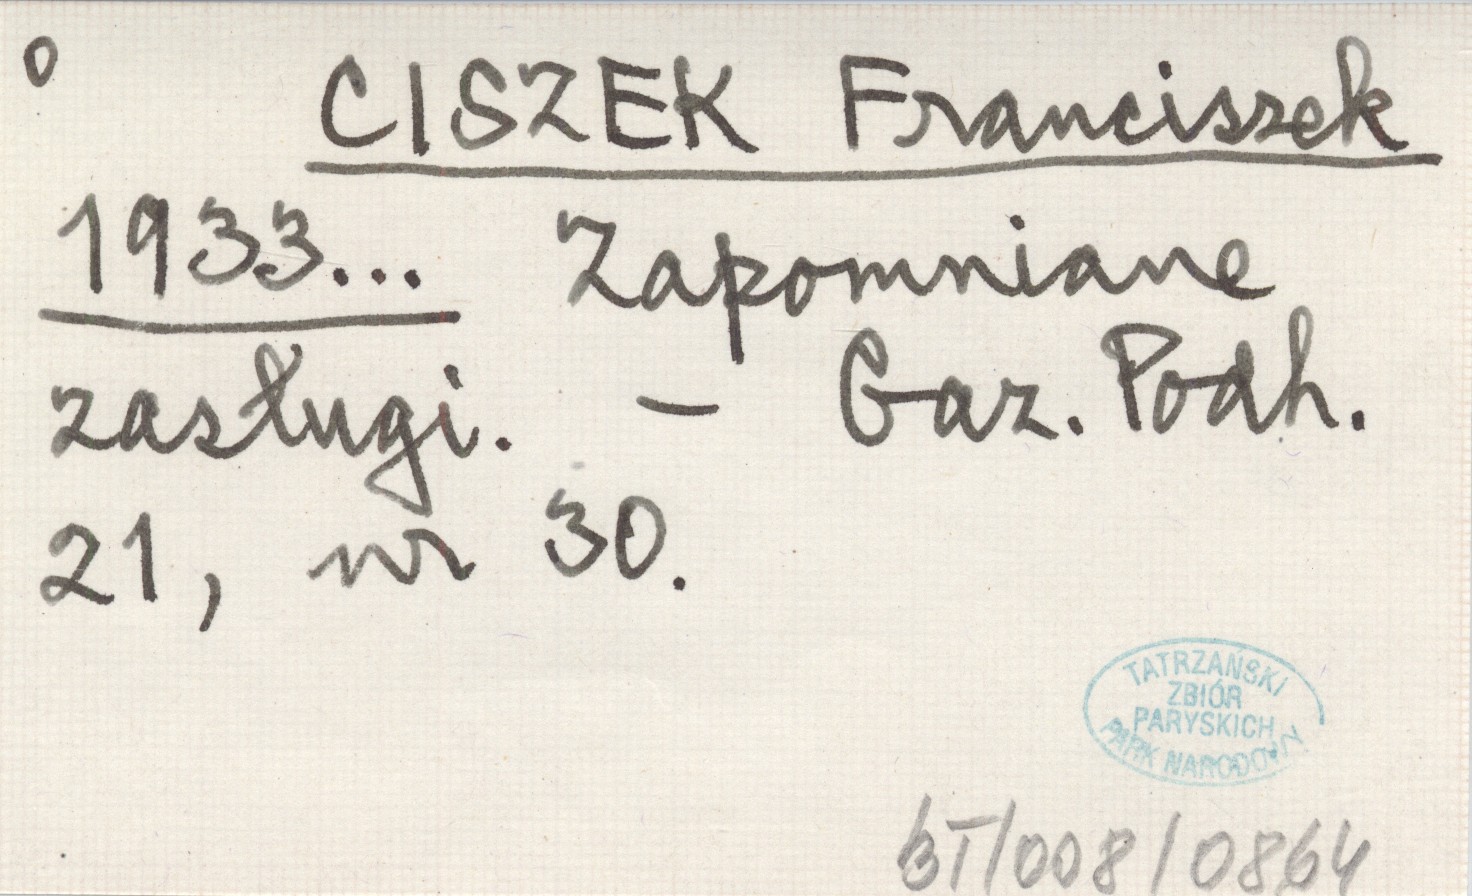 o CISZEK Franciszek
1933... Zapomniane
zasługi. – Gaz. Podh.
21, nr 30.
TATRZAŃSKI
ZBIÓR
PARYSKICH
PARK NARODOWY
BT/008/0864